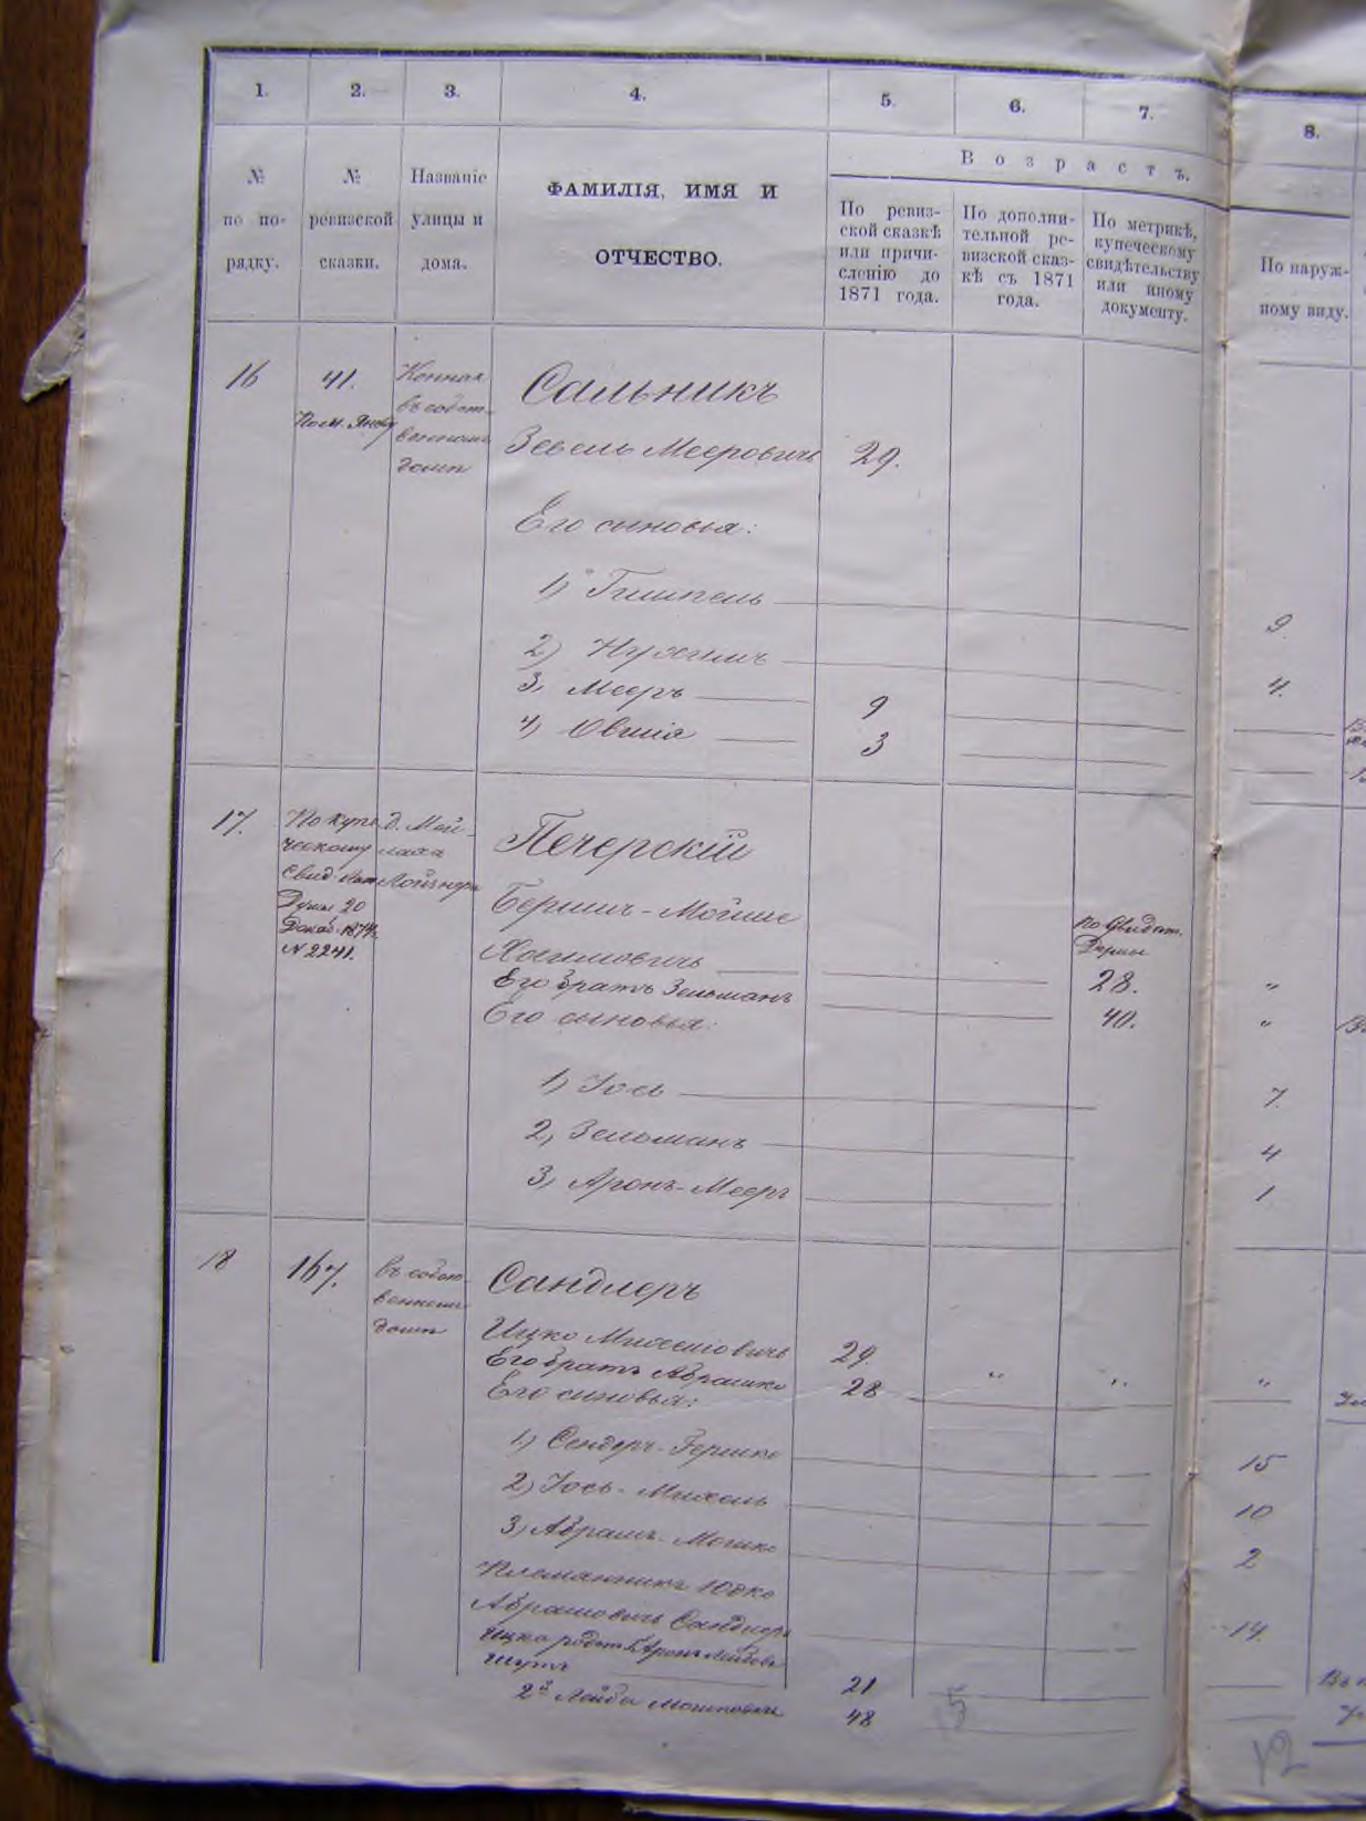 1. 2. 3. 4. 5. 6. 7. 8.
Возрастъ.
№ по по-рядку.
№ ревизской сказки.
Названіе улицы и дома.
ФАМИЛІЯ, ИМЯ И
ОТЧЕСТВО.
По ревиз-
ской сказкѣ
или причи-
сленію до
1871 года.
По дополни-
тельной ре-
визской сказ-
кѣ съ 1871
года.
По метрикѣ,
купеческому
свидѣтельству
или иному
документу.
По наруж-
ному виду.
16 41. Конная Сальникъ
въ собст-
венномъ
домѣ
Зевель Мееровичъ 29.
Его сыновья:
1) Гимпель 9.
2) Нухимъ 4.
3) Мееръ 9
4) Овшія 3
17. По купе- д. Мой- Печерскій
ческому
Свид.
Думы 20
Декаб. 1874.
№ 2241.
Бершъ-Мойше По Свидѣт.
Думы
Хаимовичъ 28. "
Его братъ Зельманъ 40. "
Его сыновья:
1) Іось 7.
2) Зельманъ 4
3) Аронъ-Мееръ 1
18 167. въ собст- Сандлеръ
венномъ
домѣ
Ицко Михелiовичъ 29.
Его братъ Абрашко 28 " " "
Его сыновья:
1) Сендеръ-Гершко 15
2) Іось-Михель 10
3) Абрамъ-Мошко 2
Племянникъ Юдко
Абрамовичъ Сандлеръ 14.
Ицка родст. Аронъ Лейбовъ
21
2й Лейба Мошковъ 48
5
12